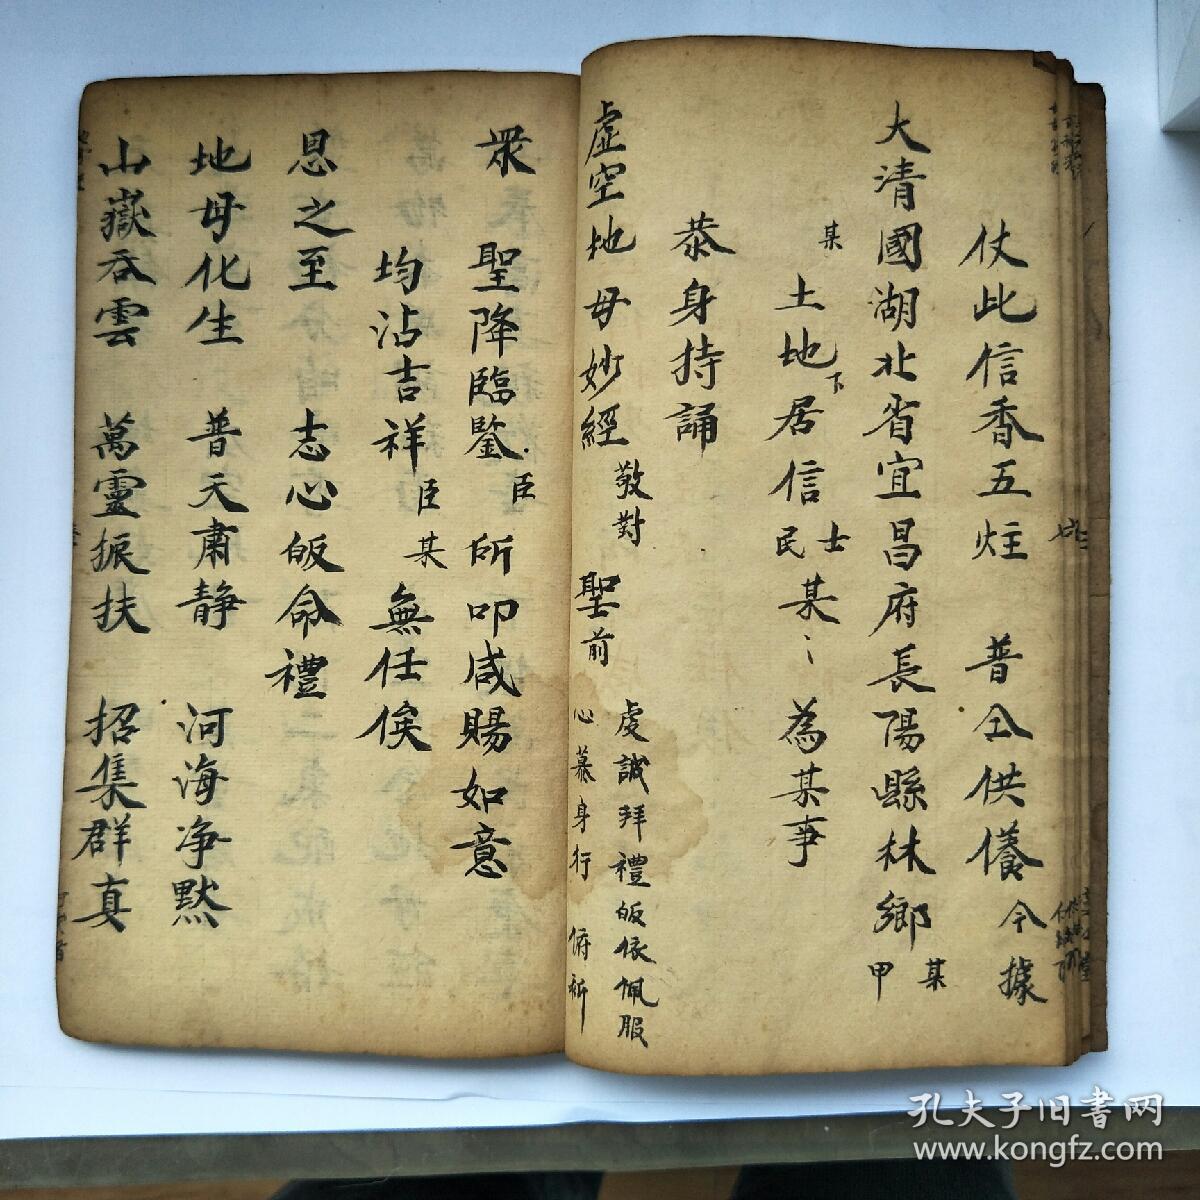 仗此信香五炷　普仝供養今據
大清國湖北省宜昌府長陽縣林鄉某甲
某土地下居信士民某〻為某事
恭身持誦
虛空地母妙經敬對　聖前虔誠拜禮皈依佩服心慕身行俯祈
眾　聖降臨鑒臣所叩咸賜如意
均沾吉祥臣某無任俟
恩之至　志心皈命禮
地母化生　普天肅静　河海净默
山嶽吞雲　萬靈振扶　招集群真
孔夫子旧书网
www.kongfz.com